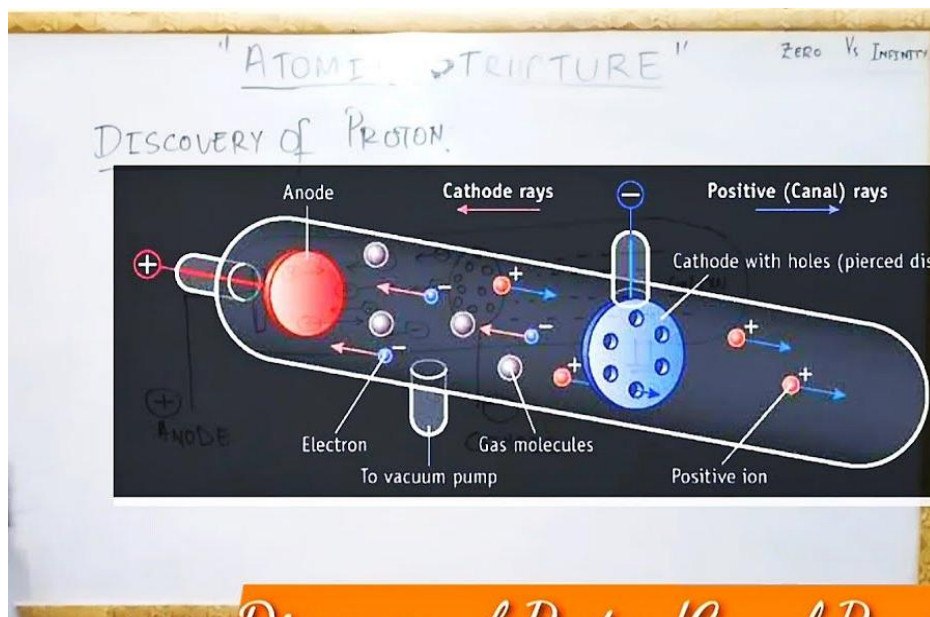 "ATOMI STRUCTURE"
ZERO Vs INFINITY
DISCOVERY of PROTON.
Anode
Cathode rays
−
Positive (Canal) rays
+
Cathode with holes (pierced dis
+
−
−
+
−
+
+
+
⊕
ANODE
Electron
Gas molecules
To vacuum pump
Positive ion